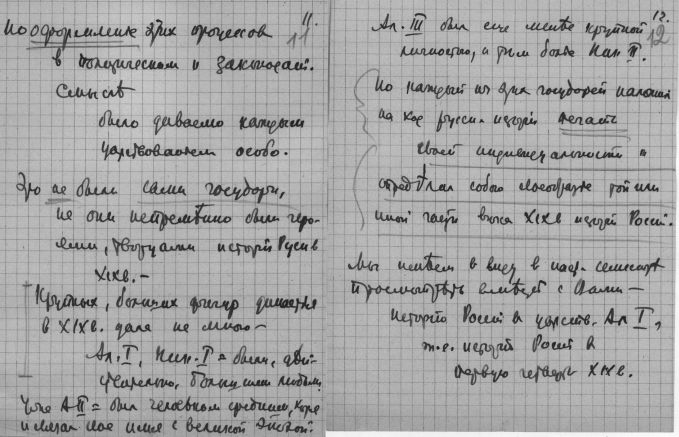 11.
11
Но оформление этих процессов
в политическом и законодат.
смыслѣ
было даваемо каждым
царствованием особо.
Это не были сами государи,
не они непремѣнно были геро-
ями, творцами исторіи Руси в
XIXв. –
Крупных, больших фигур династія
в XIXв. дала не много –
Ал. I, Ник. I = были, дѣй-
ствительно, большими людьми,
Уже А II = был человѣком средним, хотя
и связал свое имя с великой эпохой.
12.
12
Ал. III был еще менѣе крупной
личностью, а тѣм болѣе Ник. II.
Но каждый из этих государей наложил
на ход русской исторіи печать
своей индивидуальности и
опредѣлял собою своеобразіе той или
иной части вѣка XIXв исторіи Россіи.
Мы имѣем в виду в наст. семестрѣ
просмотрѣть вмѣстѣ с Вами –
исторію Россіи в царств. Ал I,
т.е. исторіи Россіи в
первую четверть XIXв.